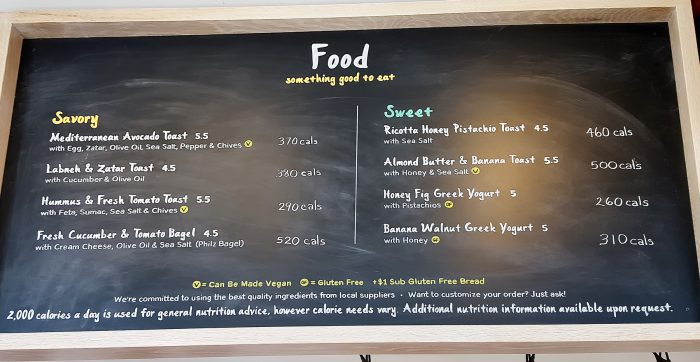 Food
something good to eat
Savory
Mediterranean Avocado Toast 5.5 370 cals
with Egg, Zatar, Olive Oil, Sea Salt, Pepper & Chives V
Labneh & Zatar Toast 4.5 380 cals
with Cucumber & Olive Oil
Hummus & Fresh Tomato Toast 5.5 290 cals
with Feta, Sumac, Sea Salt & Chives V
Fresh Cucumber & Tomato Bagel 4.5 520 cals
with Cream Cheese, Olive Oil & Sea Salt (Philz Bagel)
Sweet
Ricotta Honey Pistachio Toast 4.5 460 cals
with Sea Salt
Almond Butter & Banana Toast 5.5 500 cals
with Honey & Sea Salt V
Honey Fig Greek Yogurt 5 260 cals
with Pistachios
Banana Walnut Greek Yogurt 5 310 cals
with Honey
V = Can Be Made Vegan = Gluten Free +$1 Sub Gluten Free Bread
We're committed to using the best quality ingredients from local suppliers • Want to customize your order? Just ask!
2,000 calories a day is used for general nutrition advice, however calorie needs vary. Additional nutrition information available upon request.